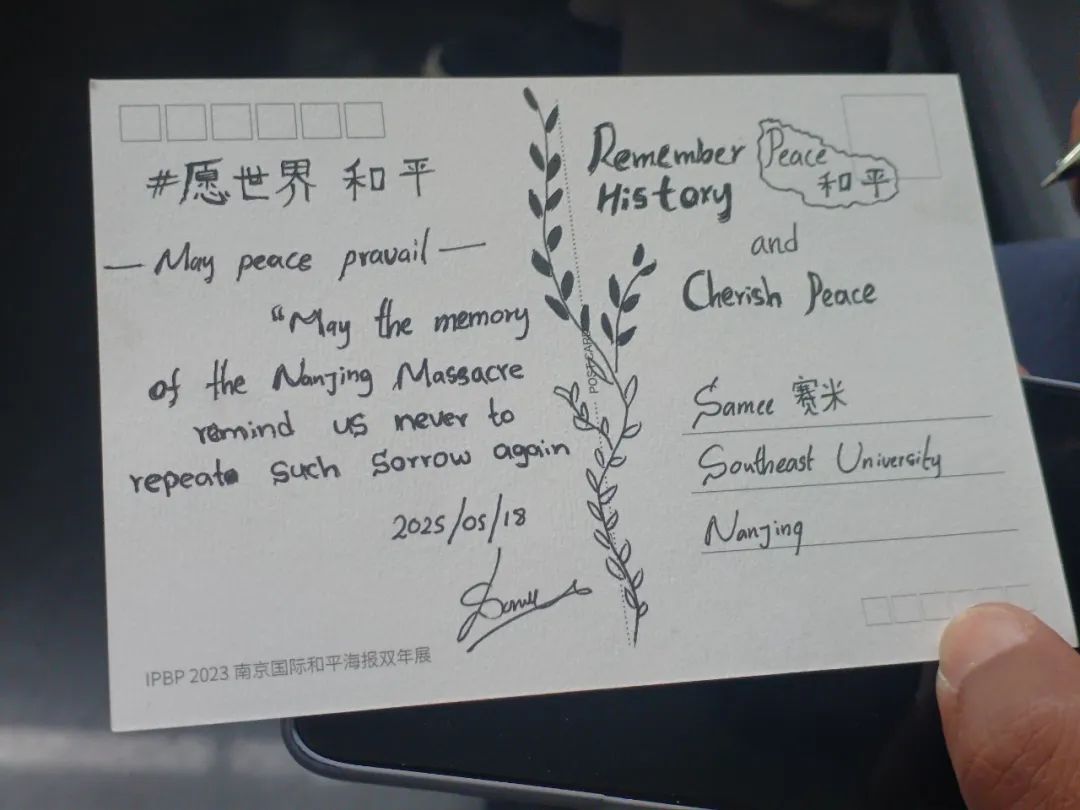 #愿世界 和平
— May peace pravail —
"May the memory
of the Nanjing Massacre
remind us never to
repeat such sorrow again
2025/05/18
Samee
IPBP 2023 南京国际和平海报双年展
POSTCARD
Remember
History
Peace
和平
and
Cherish Peace
Samee 赛米
Southeast University
Nanjing